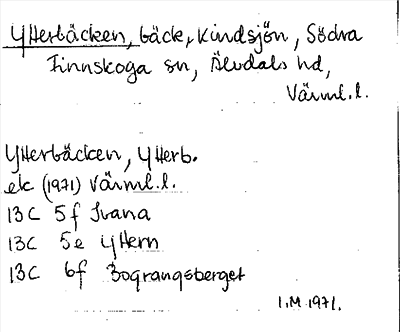 Ytterbäcken, bäck, Kindsjön, Södra
Finnskoga sn, Älvdals hd,
Värml.l.
Ytterbäcken, Ytterb.
ek (1971) Värml.l.
13C 5f Ivana
13C 5e Yttern
13C 6f Bograngsberget
I.M 1971.